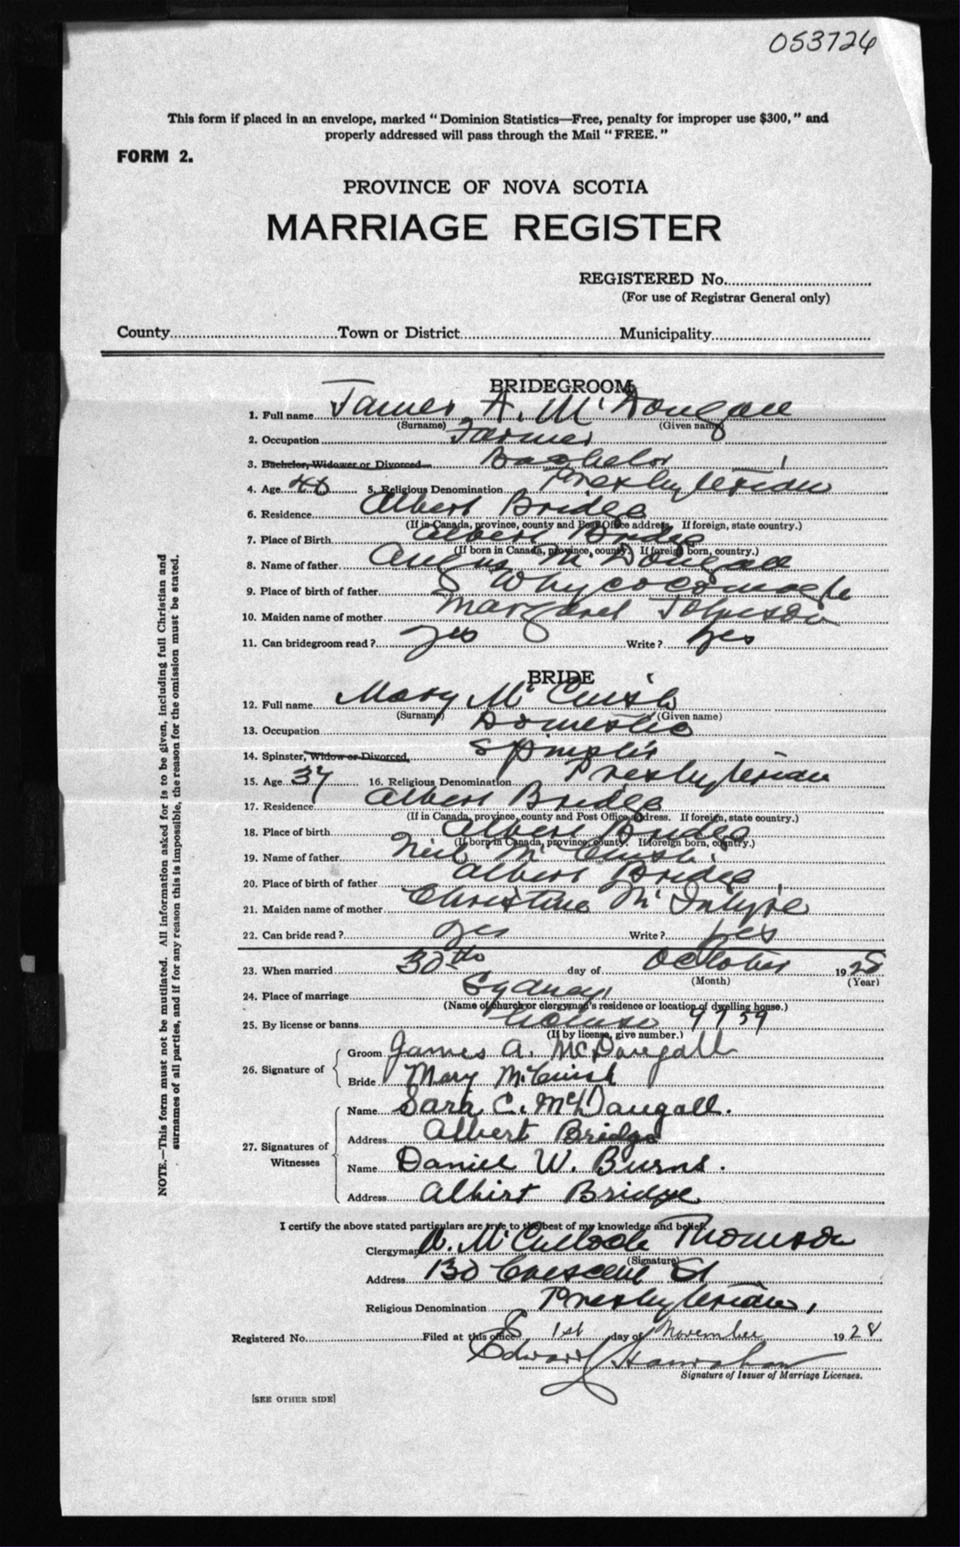 053726
This form if placed in an envelope, marked "Dominion Statistics—Free, penalty for improper use $300," and
properly addressed will pass through the Mail "FREE."
FORM 2.
PROVINCE OF NOVA SCOTIA
MARRIAGE REGISTER
REGISTERED No.
(For use of Registrar General only)
County Town or District Municipality
BRIDEGROOM
1. Full name James A. McDougall
(Surname) (Given name)
2. Occupation Farmer
3. Bachelor, Widower or Divorced Bachelor
4. Age 40 5. Religious Denomination Presbyterian
6. Residence Albert Bridge
(If in Canada, province, county and Post Office address. If foreign, state country.)
7. Place of Birth Albert Bridge
(If born in Canada, province, county. If foreign born, country.)
8. Name of father Angus McDougall
9. Place of birth of father Whycocomagh
10. Maiden name of mother Margaret Johnson
11. Can bridegroom read? yes Write? yes
BRIDE
12. Full name Mary McCuish
(Surname) (Given name)
13. Occupation Domestic
14. Spinster, Widow or Divorced Spinster
15. Age 37 16. Religious Denomination Presbyterian
17. Residence Albert Bridge
(If in Canada, province, county and Post Office address. If foreign, state country.)
18. Place of birth Albert Bridge
(If born in Canada, province, county. If foreign born, country.)
19. Name of father Neil McCuish
20. Place of birth of father Albert Bridge
21. Maiden name of mother Christine McIntyre
22. Can bride read? yes Write? yes
23. When married 30th day of October 1928
(Month) (Year)
24. Place of marriage Sydney
(Name of church or clergyman's residence or location of dwelling house.)
25. By license or banns License 9759
(If by license, give number.)
26. Signature of
Groom James A. McDougall
Bride Mary McCuish
27. Signatures of Witnesses
Name Sara C. McDougall.
Address Albert Bridge
Name Daniel W. Burns.
Address Albert Bridge
I certify the above stated particulars are true to the best of my knowledge and belief.
Clergyman A. McCulloch Thomson
(Signature)
Address 130 Crescent St
Religious Denomination Presbyterian,
Registered No. Filed at this office 1st day of November 1928
Edward Hanrahan
Signature of Issuer of Marriage Licenses.
[SEE OTHER SIDE]
NOTE.—This form must not be mutilated. All information asked for is to be given, including full Christian and
surnames of all parties, and if for any reason this is impossible, the reason for the omission must be stated.